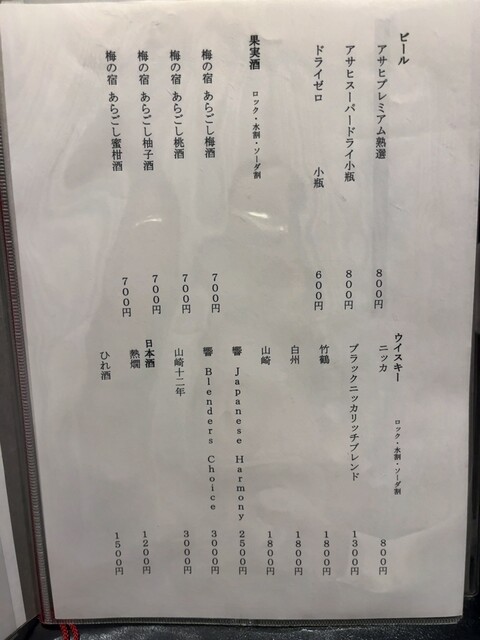 ビール
アサヒプレミアム熟選 800円
アサヒスーパードライ小瓶 800円
ドライゼロ 小瓶 600円
果実酒 ロック・水割・ソーダ割
梅の宿 あらごし梅酒 700円
梅の宿 あらごし桃酒 700円
梅の宿 あらごし柚子酒 700円
梅の宿 あらごし蜜柑酒 700円
ウイスキー ロック・水割・ソーダ割
ニッカ 800円
ブラックニッカリッチブレンド 1300円
竹鶴 1800円
白州 1800円
山崎 1800円
響 Japanese Harmony 2500円
響 Blenders Choice 3000円
山崎十二年 3000円
日本酒
熱燗 1200円
ひれ酒 1500円